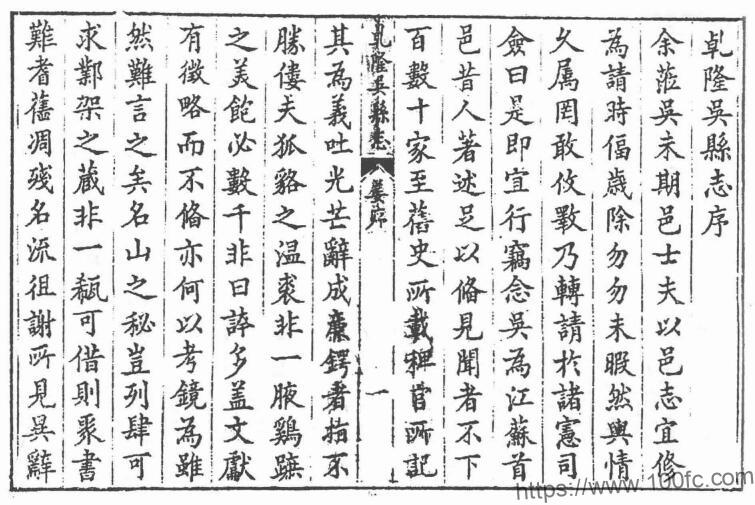 乹隆吳縣志序
余蒞吳未期邑士夫以邑志宜修
為請時偪歲除勿勿未暇然輿情
久属罔敢攸斁乃轉請於諸憲司
僉曰是即宜行竊念吳為江蘇首
邑昔人著述足以俻見聞者不下
百數十家至舊史所載稗官所記
乹隆吳縣志 姜序 一
其為義吐光芒辭成廉鍔者指不
勝僂夫狐貉之温裘非一腋鷄蹠
之美飽必數千非曰誇多盖文獻
有徵略而不俻亦何以考鏡為雖
然難言之矣名山之秘豈列肆可
求鄴架之蔵非一瓻可借則聚書
難者舊凋殘名流徂謝所見異辭
https://www.100fc.com